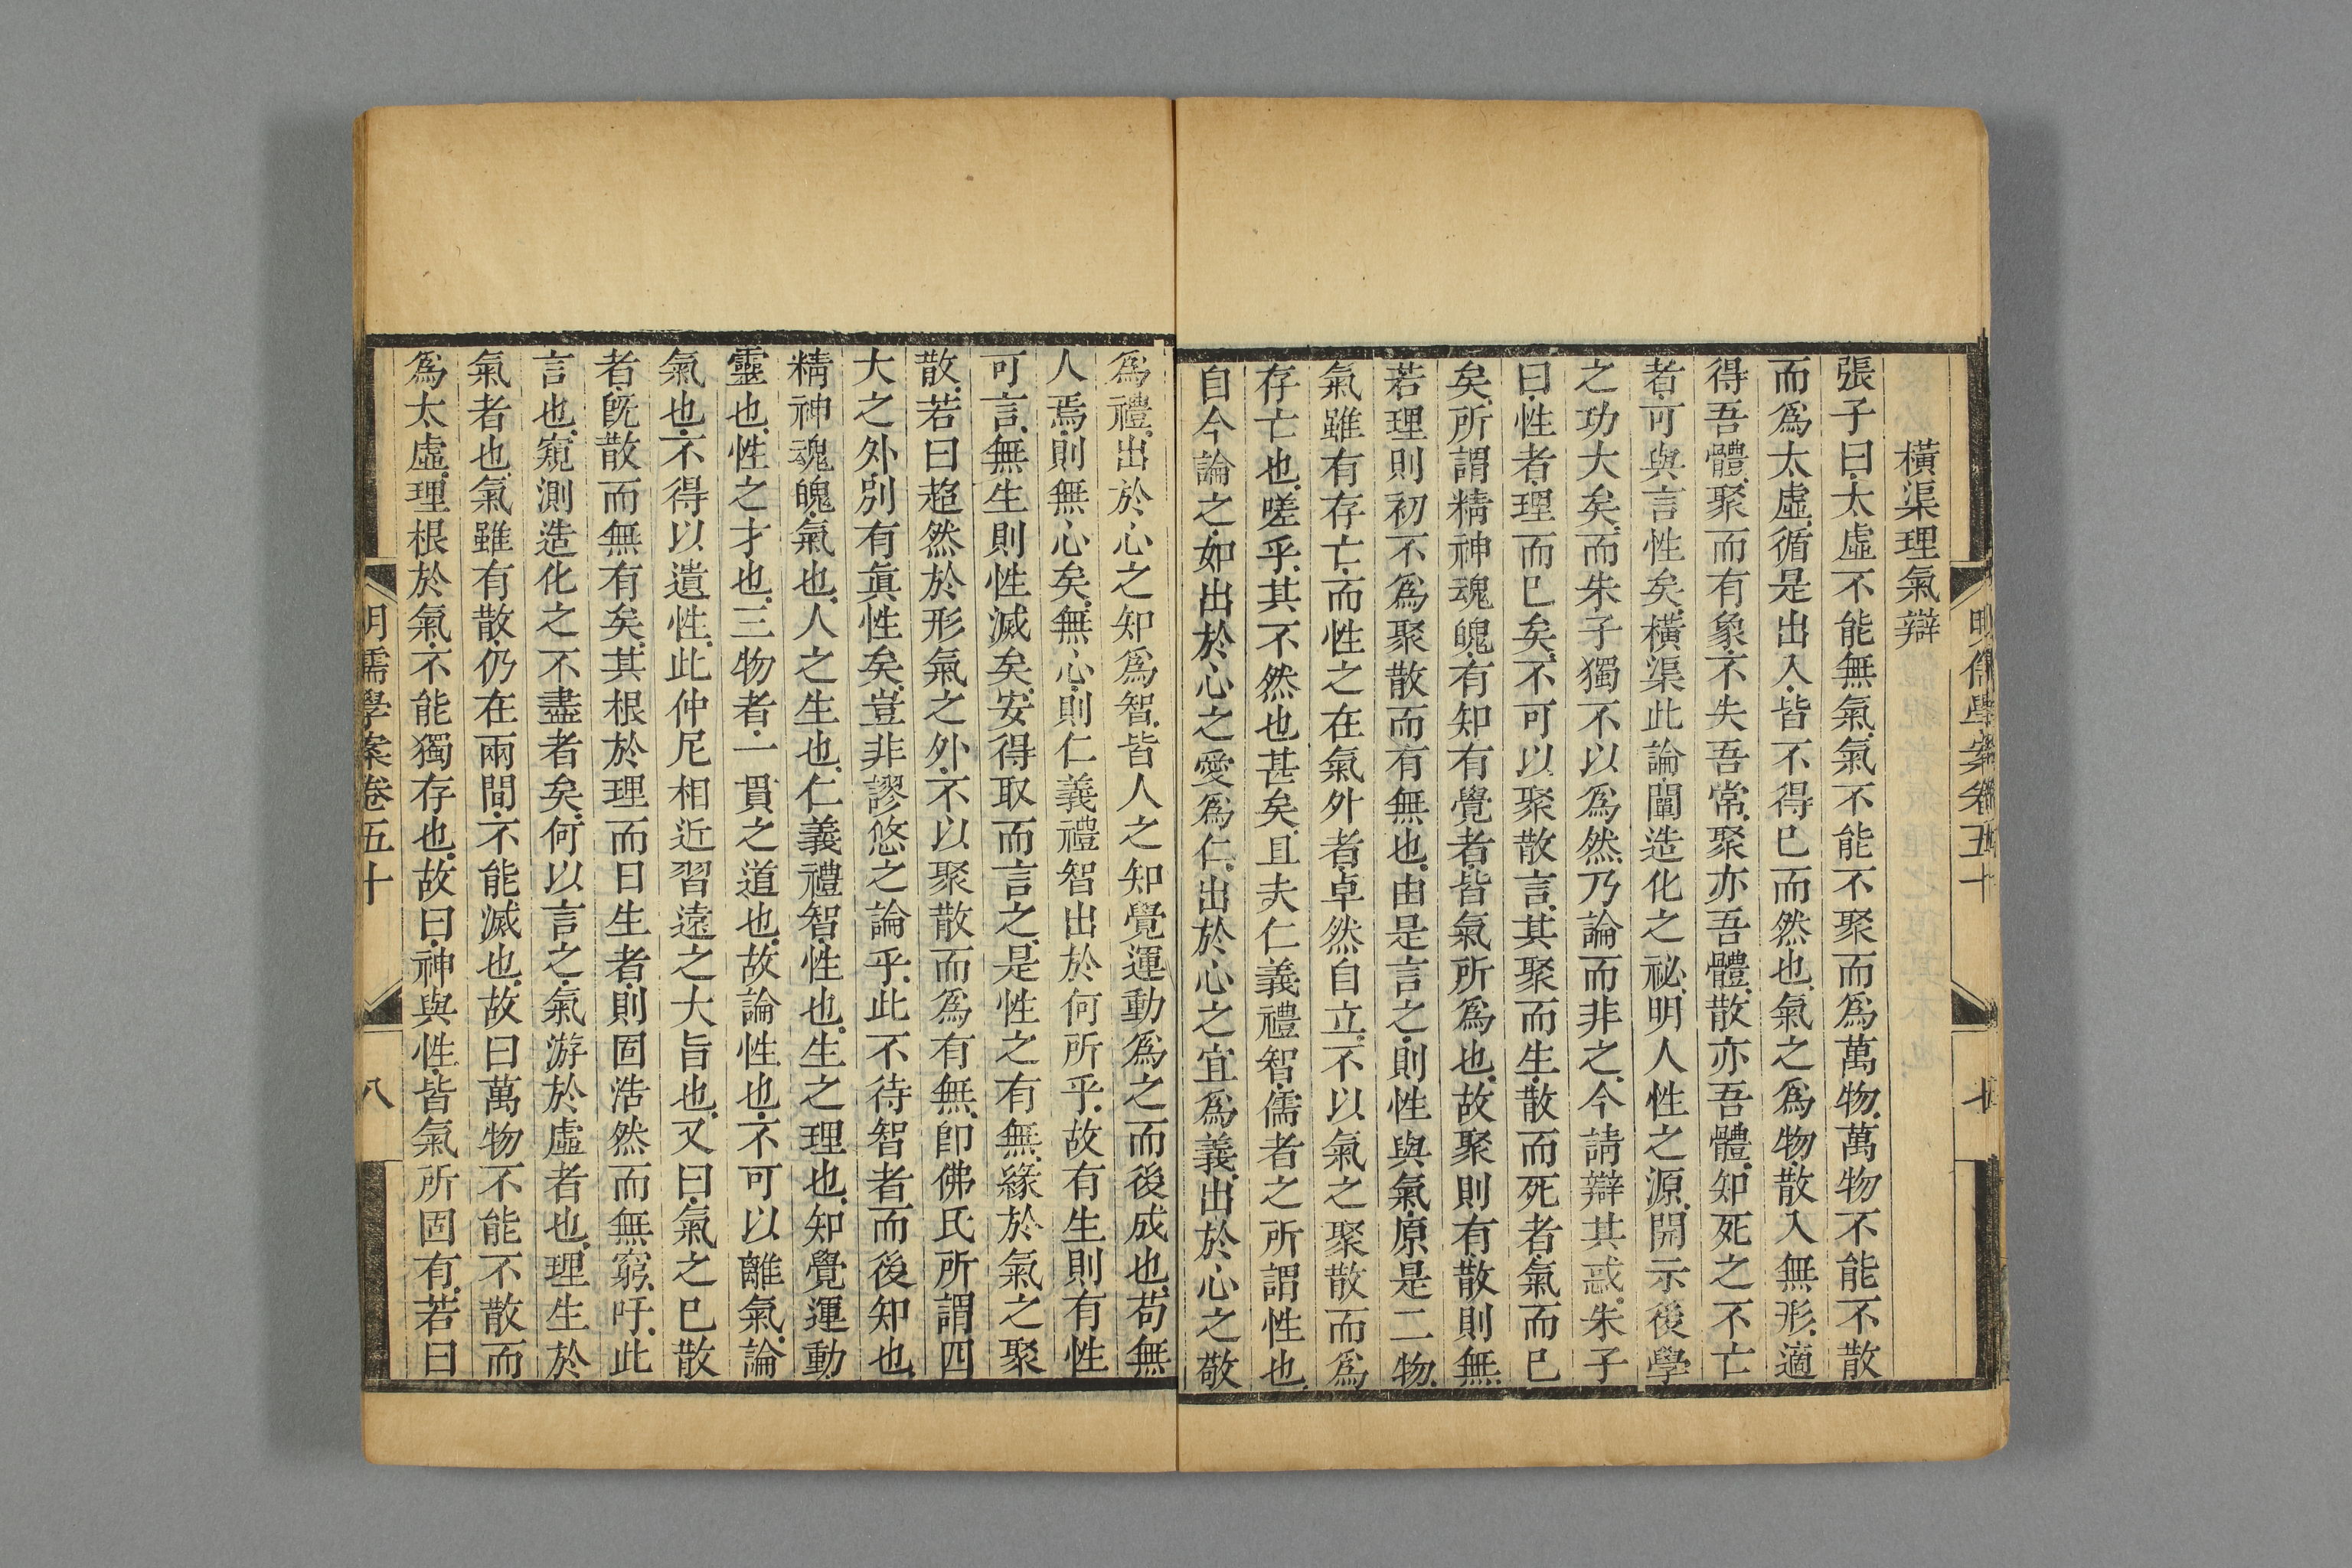 橫渠理氣辯
張子曰太虛不能無氣氣不能不聚而爲萬物萬物不能不散
而爲太虛循是出入皆不得已而然也氣之爲物散入無形適
得吾體聚而有象不失吾常聚亦吾體散亦吾體知死之不亡
者可與言性矣橫渠此論闡造化之祕明人性之源開示後學
之功大矣而朱子獨不以爲然乃論而非之今請辯其惑朱子
曰性者理而已矣不可以聚散言其聚而生散而死者氣而已
矣所謂精神魂魄有知有覺者皆氣所爲也故聚則有散則無
若理則初不爲聚散而有無也由是言之則性與氣原是二物
氣雖有存亡而性之在氣外者卓然自立不以氣之聚散而爲
存亡也嗟乎其不然也甚矣且夫仁義禮智儒者之所謂性也
自今論之如出於心之愛爲仁出於心之宜爲義出於心之敬
爲禮出於心之知爲智皆人之知覺運動爲之而後成也苟無
人焉則無心矣無心則仁義禮智出於何所乎故有生則有性
可言無生則性滅矣安得取而言之是性之有無緣於氣之聚
散若曰超然於形氣之外不以聚散而爲有無卽佛氏所謂四
大之外別有眞性矣豈非謬悠之論乎此不待智者而後知也
精神魂魄氣也人之生也仁義禮智性也生之理也知覺運動
靈也性之才也三物者一貫之道也故論性也不可以離氣論
氣也不得以遺性此仲尼相近習遠之大旨也又曰氣之已散
者旣散而無有矣其根於理而日生者則固浩然而無窮吁此
言也窺測造化之不盡者矣何以言之氣游於虛者也理生於
氣者也氣雖有散仍在兩間不能滅也故曰萬物不能不散而
爲太虛理根於氣不能獨存也故曰神與性皆氣所固有若曰
明儒學案卷五十
八